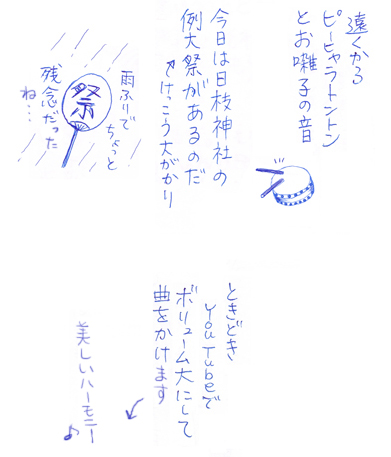 遠くかる
ピーヒャラトントン
とお囃子の音
今日は日枝神社の
例大祭があるのだ
けっこう大がかり
雨ふりで
ちょっと
残念だった
ね…
祭
ときどき
YouTubeで
ボリューム大にして
曲をかけます
美しいハーモニー♪